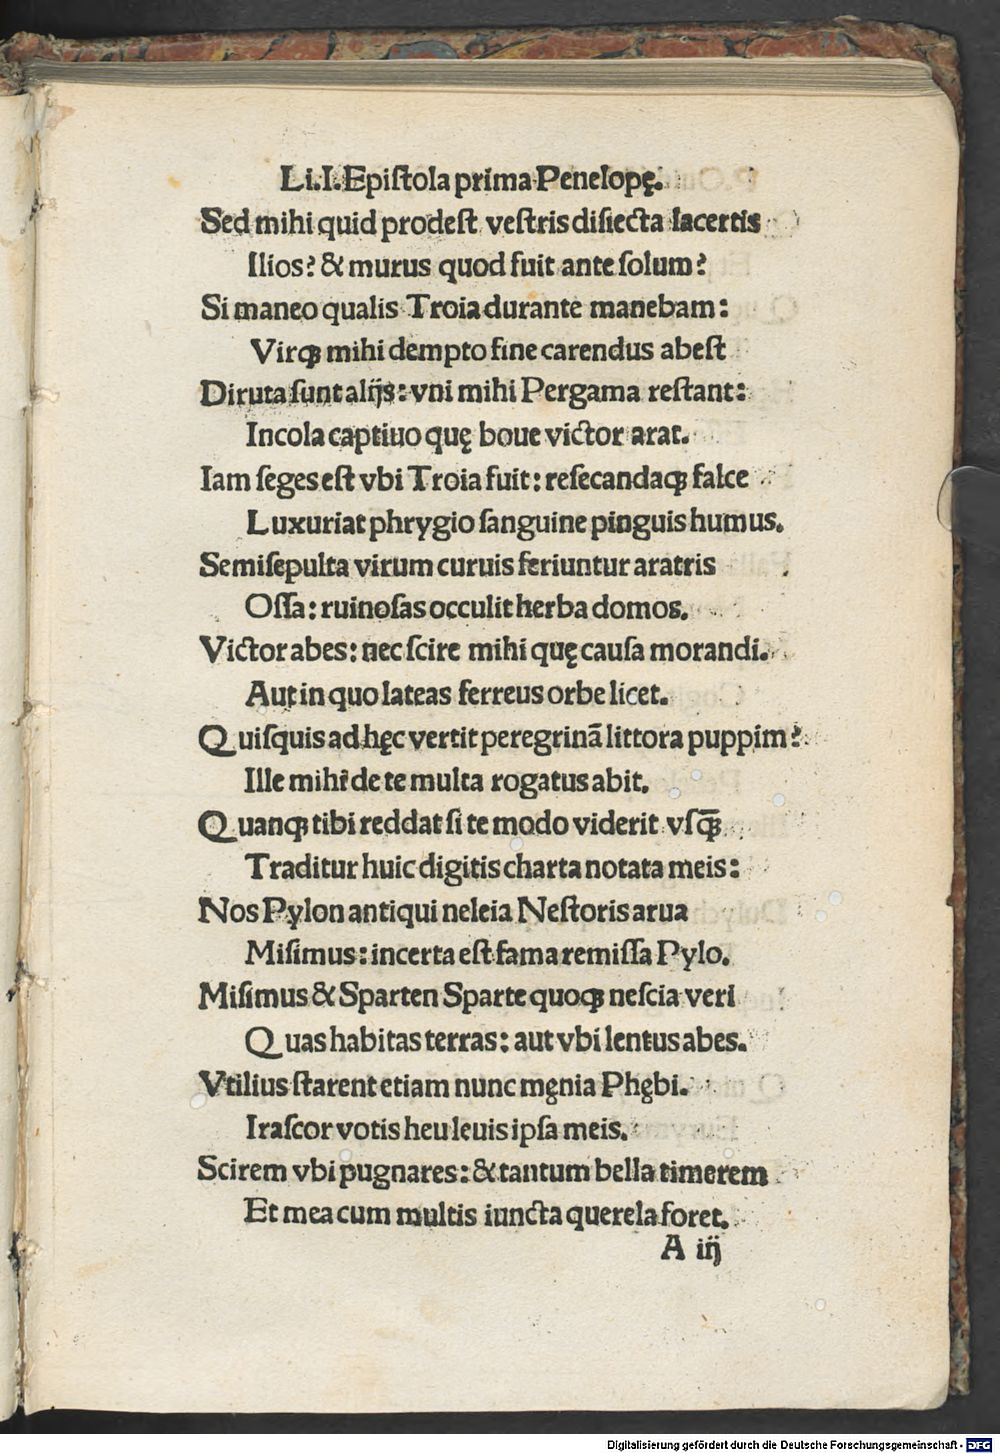 Li.I.Epiſtola prima Penelopę.
Sed mihi quid prodeſt veſtris diſiecta lacertis
Ilios? & murus quod fuit ante ſolum?
Si maneo qualis Troia durante manebam:
Virqꝫ mihi dempto fine carendus abeſt
Diruta ſunt alijs: vni mihi Pergama reſtant:
Incola captiuo quę boue victor arat.
Iam ſeges eſt vbi Troia fuit: reſecandaqꝫ falce
Luxuriat phrygio ſanguine pinguis humus.
Semiſepulta virum curuis feriuntur aratris
Oſſa: ruinoſas occulit herba domos.
Victor abes: nec ſcire mihi quę cauſa morandi.
Aut in quo lateas ferreus orbe licet.
Quiſquis ad hęc vertit peregrinā littora puppim?
Ille mihi de te multa rogatus abit.
Quanqꝫ tibi reddat ſi te modo viderit vſq̄ꝫ
Traditur huic digitis charta notata meis:
Nos Pylon antiqui neleia Neſtoris arua
Miſimus: incerta eſt fama remiſſa Pylo.
Miſimus & Sparten Sparte quoqꝫ neſcia veri
Quas habitas terras: aut vbi lentus abes.
Vtilius ſtarent etiam nunc męnia Phębi.
Iraſcor votis heu leuis ipſa meis.
Scirem vbi pugnares: & tantum bella timerem
Et mea cum multis iuncta querela foret.
A iij
Digitalisierung gefördert durch die Deutsche Forschungsgemeinschaft - DFG